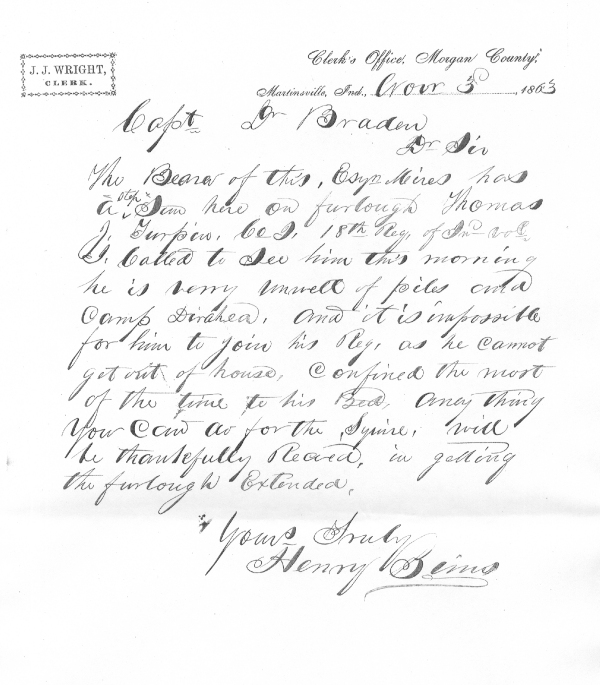 J. J. WRIGHT,
CLERK.
Clerk's Office, Morgan County,
Martinsville, Ind., Novr 3d 1863
Capt Dr Braden
Dr Sir
The Bearer of this, Esqr Mires has
a Step Son here on furlough Thomas
J. Turpin. Co I. 18th Reg. of Ind vol
I. Called to See him this morning
he is verry unwell of piles and
Camp Dirahea, and it is impossible
for him to join his Reg, as he cannot
get out of house, Confined the most
of the time to his Bed, any thing
You Can do for the Squire, will
be thankfully Receved, in getting
the furlough Extended,
Yours Truly
Henry Sims